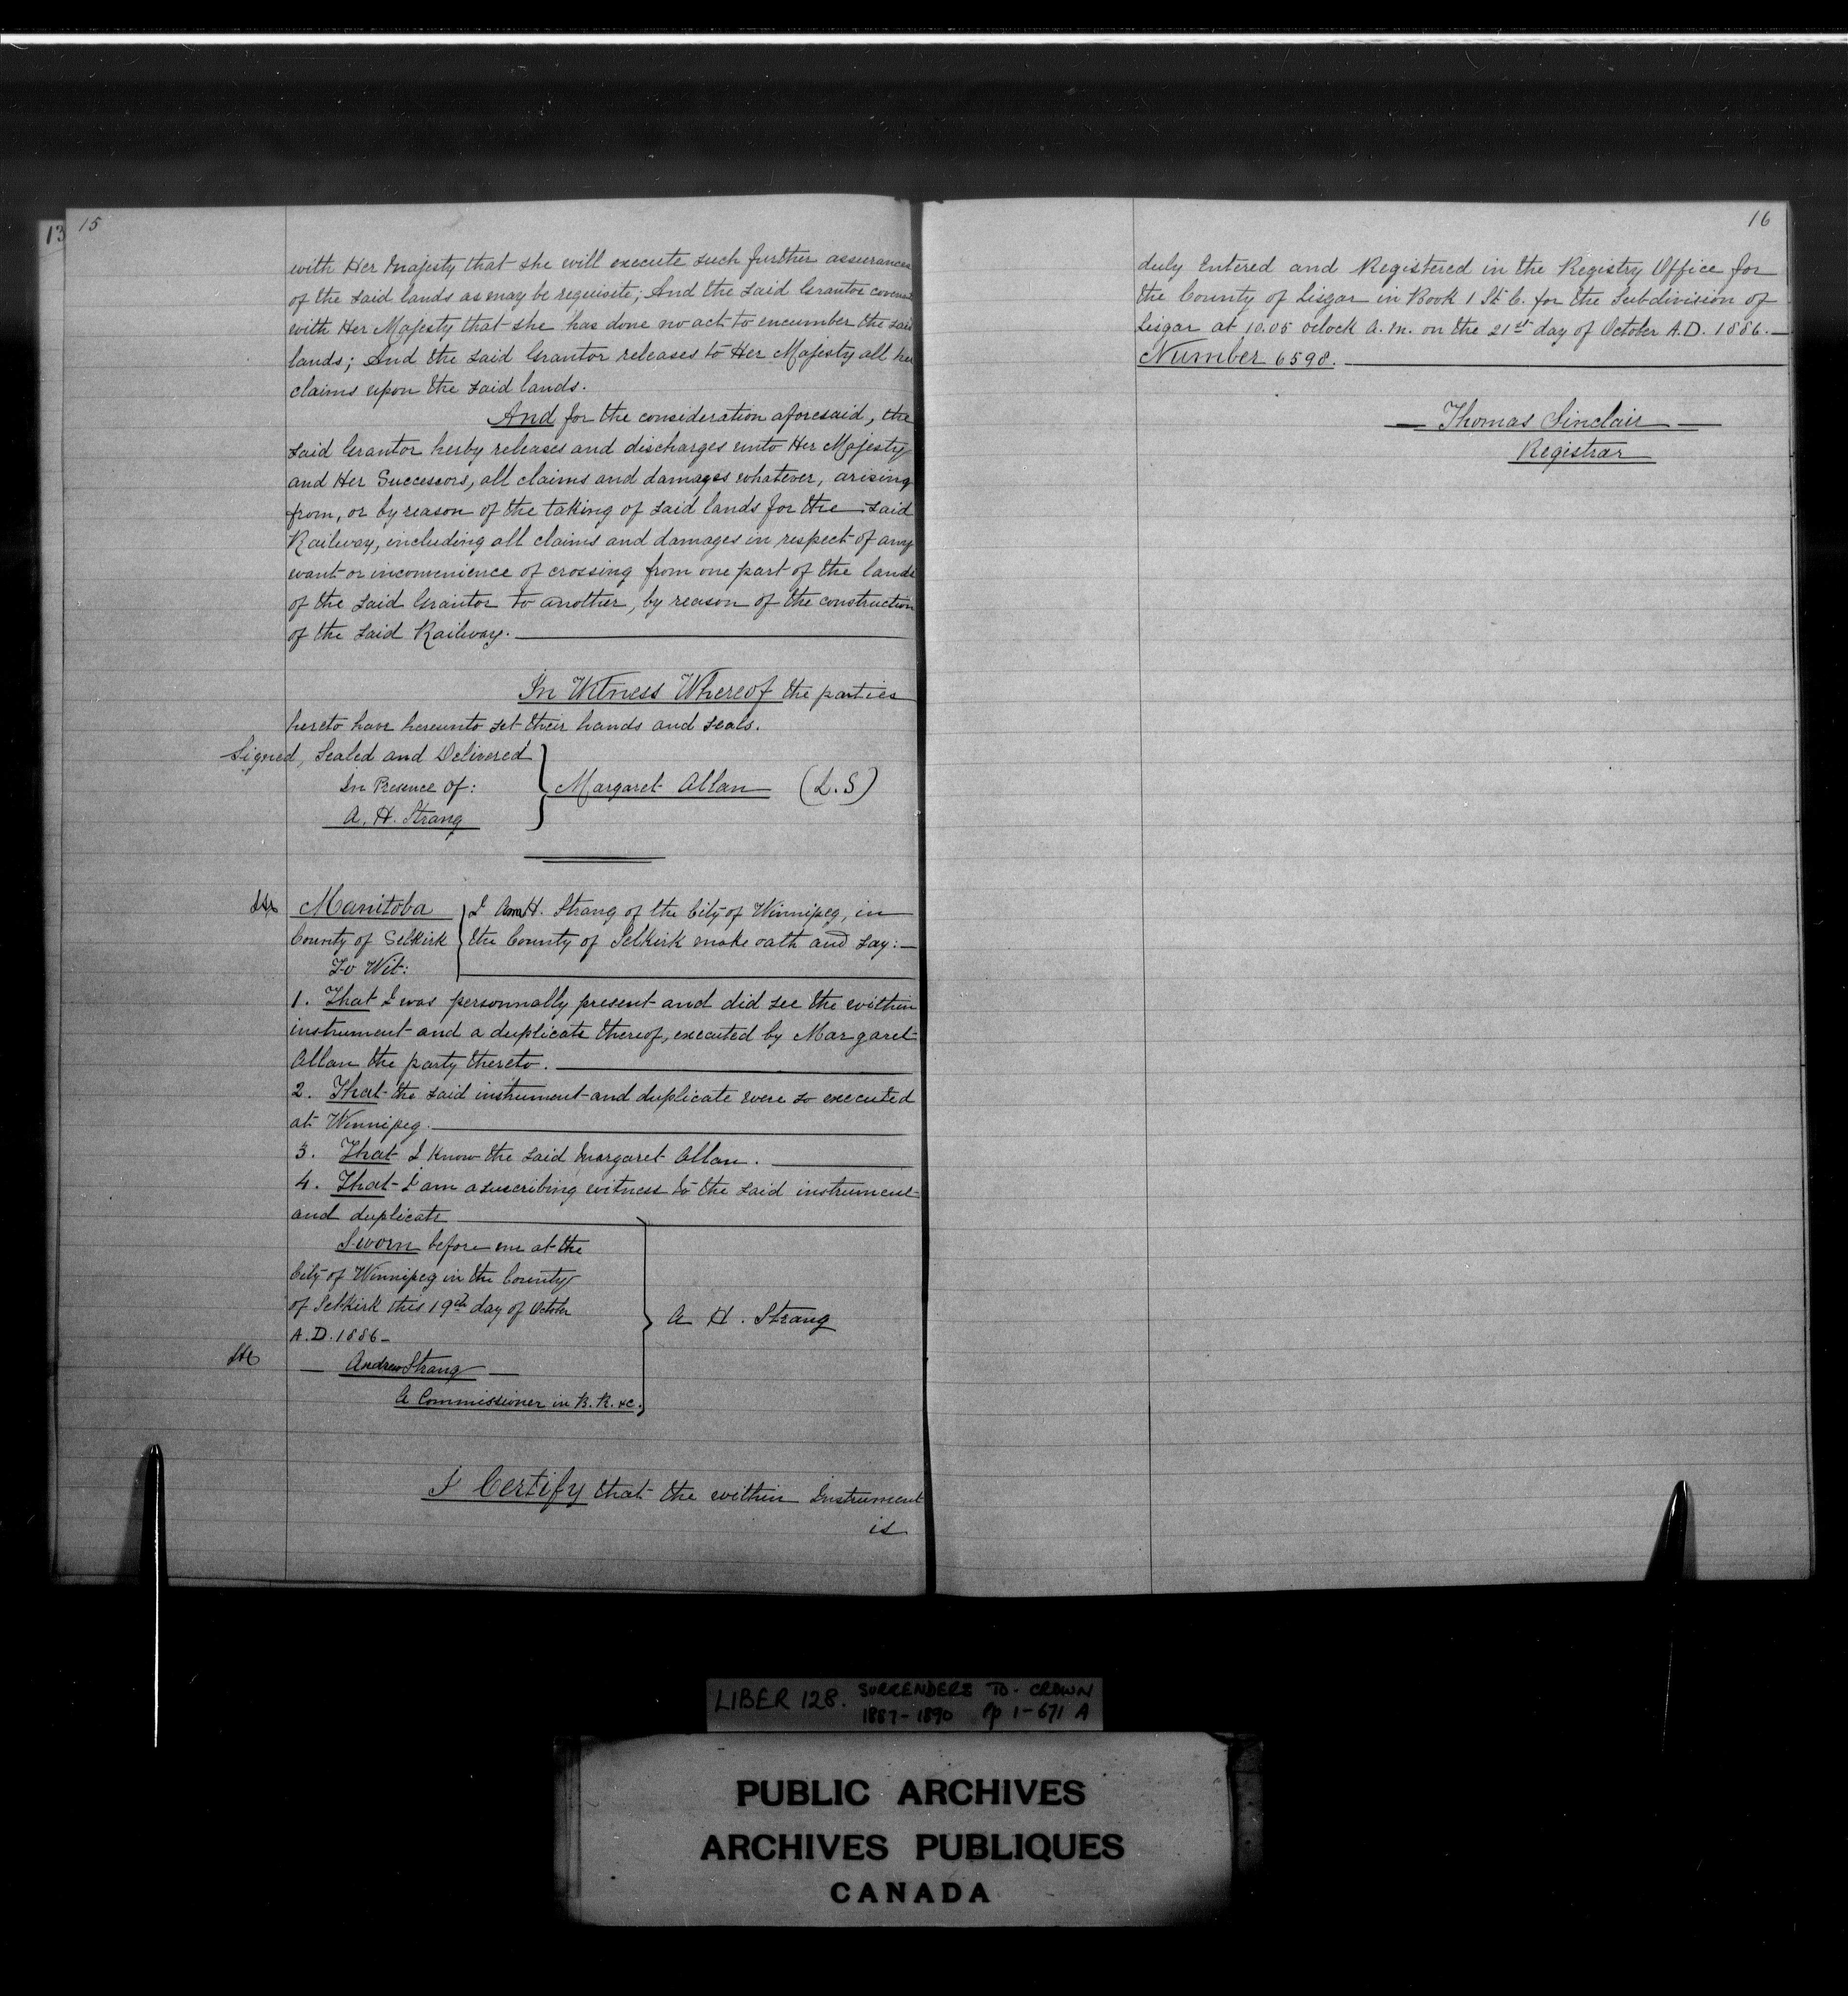 13
15
with Her Majesty that she will execute such further assurances
of the said lands as may be requisite; And the said Grantor covenants
with Her Majesty that she has done no act to encumber the said
lands; And the said Grantor releases to Her Majesty all her
claims upon the said lands.
And for the consideration aforesaid, the
said Grantor herby releases and discharges unto Her Majesty
and Her Successors, all claims and damages whatever, arising
from, or by reason of the taking of said lands for the said
Railway, including all claims and damages in respect of any
want or inconvenience of crossing from one part of the lands
of the said Grantor to another, by reason of the construction
of the said Railway.
In Witness Whereof the parties
hereto have hereunto set their hands and seals.
Signed, Sealed and Delivered
In Presence Of:
A. H. Strang
Margaret Allan (L.S)
Manitoba
County of Selkirk
To Wit:
I H. Strang of the City of Winnipeg, in
the County of Selkirk make oath and say:—
1. That I was personnally present and did see the within
instrument and a duplicate thereof, executed by Margaret
Allan the party thereto.
2. That the said instrument and duplicate were so executed
at Winnipeg.
3. That I know the said Margaret Allan.
4. That I am a suscribing witness to the said instrument
and duplicate
Sworn before me at the
City of Winnipeg in the County
of Selkirk this 19th day of October
A.D. 1886—
Andrew Strang
A Commissioner in B. R. &c.
A H. Strang
I Certify that the within Instrument
is
16
duly Entered and Registered in the Registry Office for
the County of Lisgar in Book 1 St C. for the Subdivision of
Lisgar at 10.05 oclock A.M. on the 21st day of October A.D. 1886.—
Number 6598.
Thomas Sinclair
Registrar
LIBER 128. SURRENDERS TO CROWN
1887-1890 Pp 1-671 A
PUBLIC ARCHIVES
ARCHIVES PUBLIQUES
CANADA